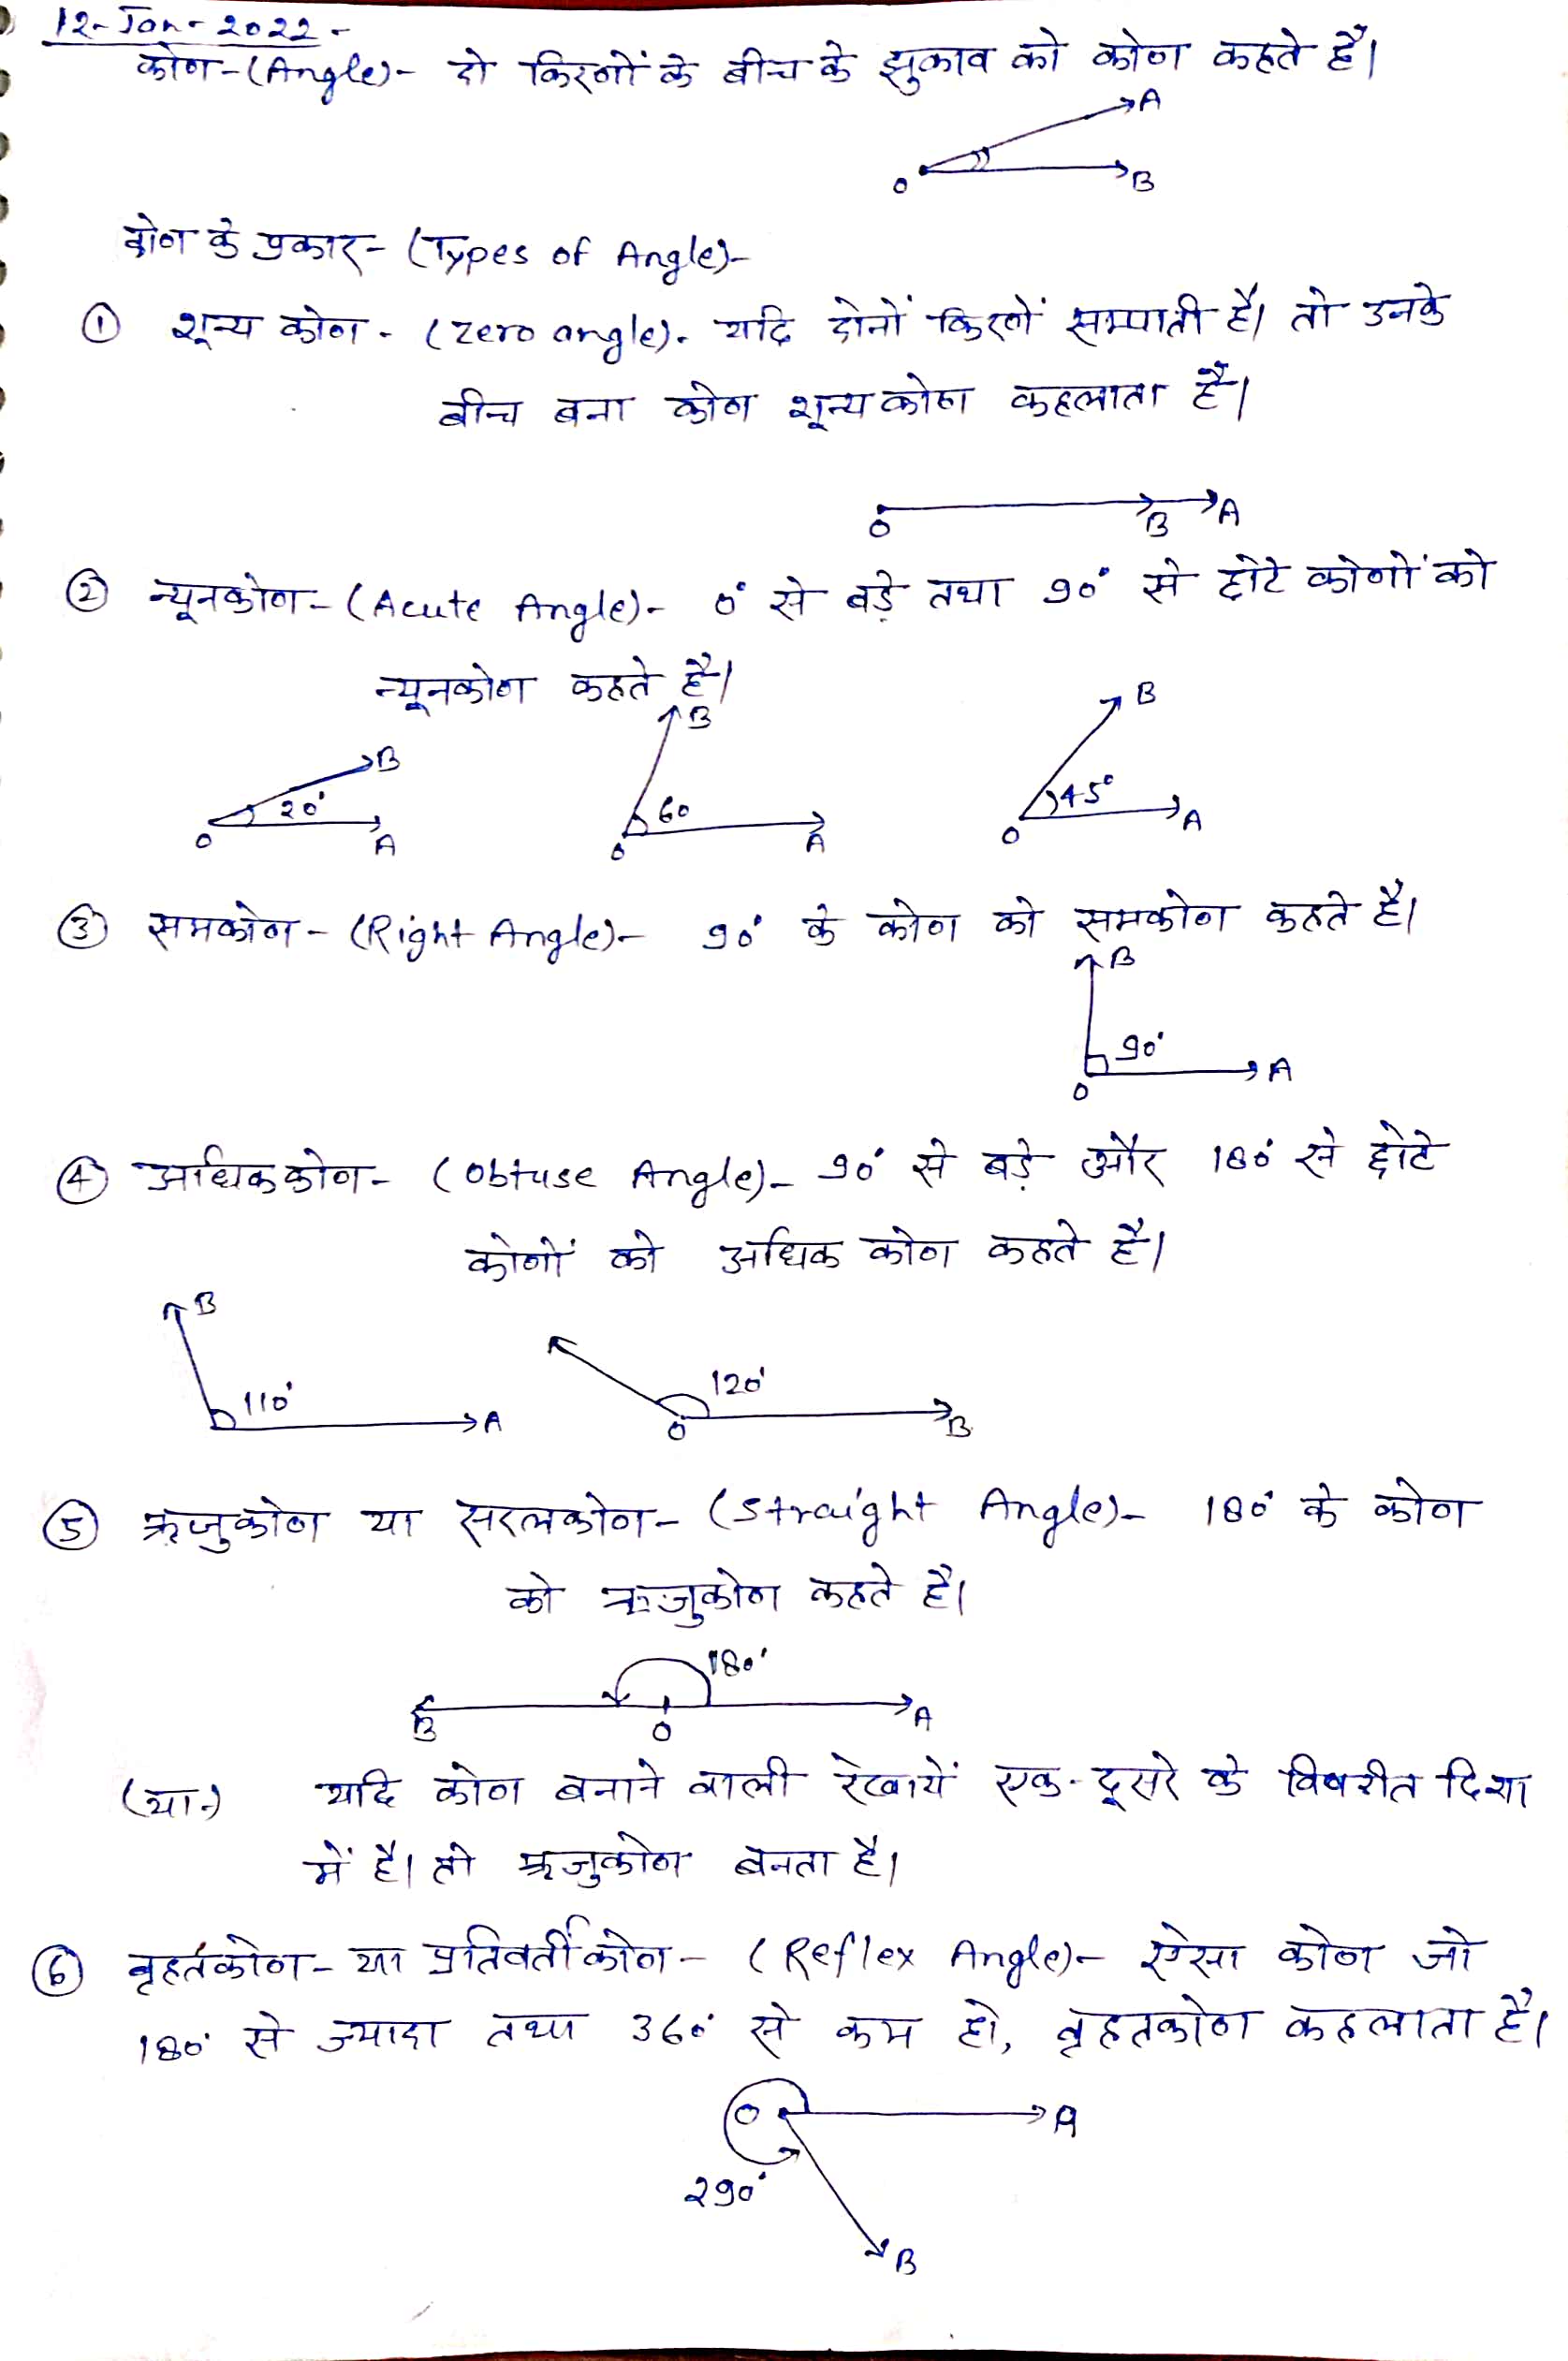 12-Jan-2022-
कोण-(Angle)- दो किरणों के बीच के झुकाव को कोण कहते हैं।
A
O B
कोण के प्रकार- (Types of Angle)-
① शून्य कोण - (zero angle)- यदि दोनों किरणें सम्पाती है। तो उनके
बीच बना कोण शून्य कोण कहलाता हैं।
O B A
② न्यूनकोण - (Acute Angle)- 0° से बड़े तथा 90° से छोटे कोणों को
न्यूनकोण कहते है।
B B B
20° 60 45°
O A O A O A
③ समकोण - (Right Angle)- 90° के कोण को समकोण कहते है।
B
90°
O A
④ अधिककोण - (Obtuse Angle)- 90° से बड़े और 180° से छोटे
कोणों को अधिक कोण कहते है।
B
110° A 120°
O B
⑤ ऋजुकोण या सरलकोण - (Straight Angle)- 180° के कोण
को ऋजुकोण कहते है।
180°
B O A
(या-) यदि कोण बनाने वाली रेखायें एक-दूसरे के विपरीत दिशा
में है। तो ऋजुकोण बनता है।
⑥ वृहतकोण - या प्रतिवर्ती कोण - (Reflex Angle)- ऐसा कोण जो
180° से ज्यादा तथा 360° से कम हो, वृहतकोण कहलाता है।
O A
290°
B